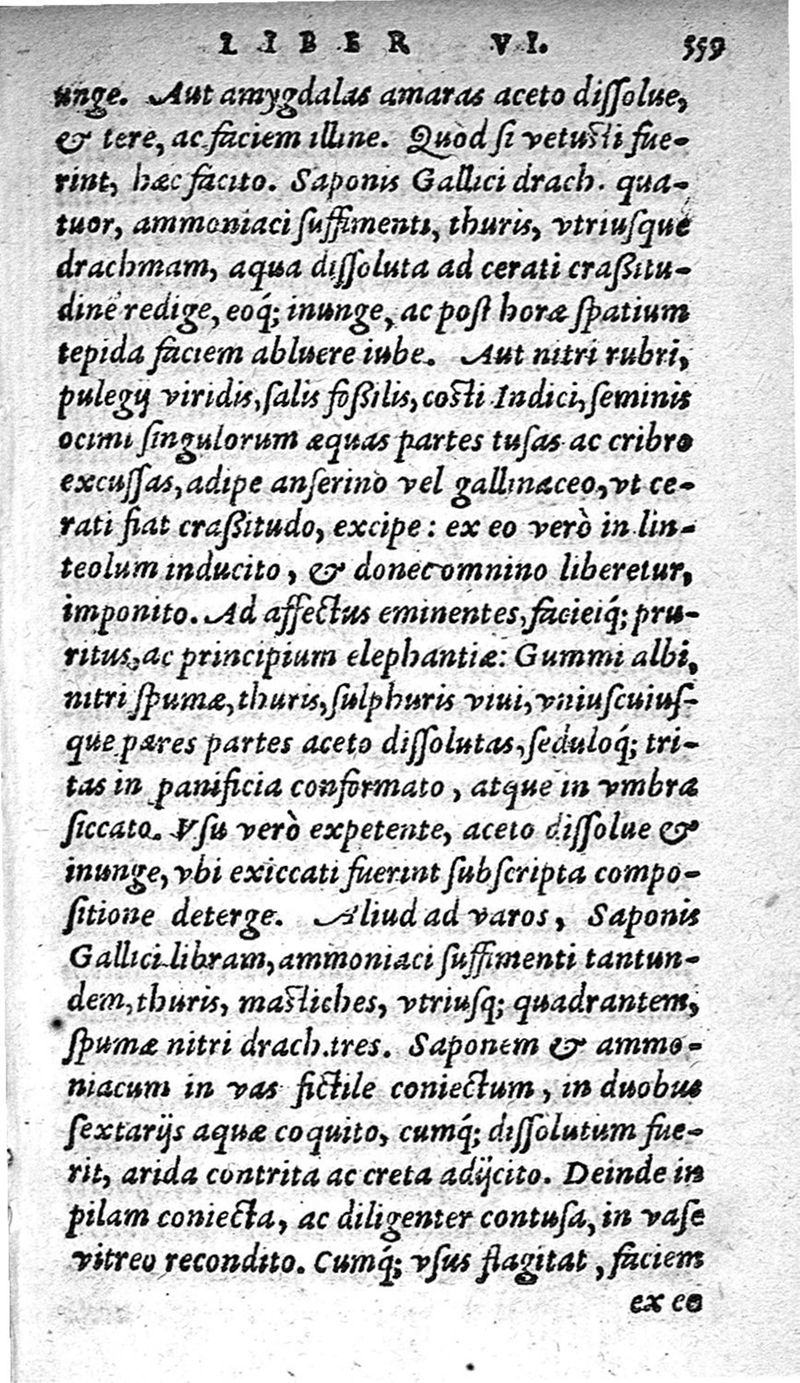 LIBER VI. 559
unge. Aut amygdalas amaras aceto dissolue,
& tere, ac faciem illine. Quòd si vetusti fue-
rint, hæc facito. Saponis Gallici drach. qua-
tuor, ammoniaci suffimenti, thuris, vtriusque
drachmam, aqua dissoluta ad cerati crassitu-
dinē redige, eoq́; inunge, ac post horæ spatium
tepida faciem abluere iube. Aut nitri rubri,
pulegij viridis, salis fossilis, costi Indici, seminis
ocimi singulorum æquas partes tusas ac cribro
excussas, adipe anserino vel gallinaceo, vt ce-
rati fiat crassitudo, excipe: ex eo verò in lin-
teolum inducito, & donec omnino liberetur,
imponito. Ad affectus eminentes, facieiq́; pru-
ritus, ac principium elephantiæ: Gummi albi,
nitri spumæ, thuris, sulphuris viui, vniuscuius-
que pares partes aceto dissolutas, seduloq́; tri-
tas in panificia conformato, atque in vmbra
siccato. Vsu verò expetente, aceto dissolue &
inunge, vbi exiccati fuerint subscripta compo-
sitione deterge. Aliud ad varos, Saponis
Gallici libram, ammoniaci suffimenti tantun-
dem, thuris, mastiches, vtriusq; quadrantem,
spumæ nitri drach. tres. Saponem & ammo-
niacum in vas fictile coniectum, in duobus
sextarijs aquæ coquito, cumq́; dissolutum fue-
rit, arida contrita ac creta adijcito. Deinde in
pilam coniecta, ac diligenter contusa, in vase
vitreo recondito. Cumq́; vsus flagitat, faciem
ex eo